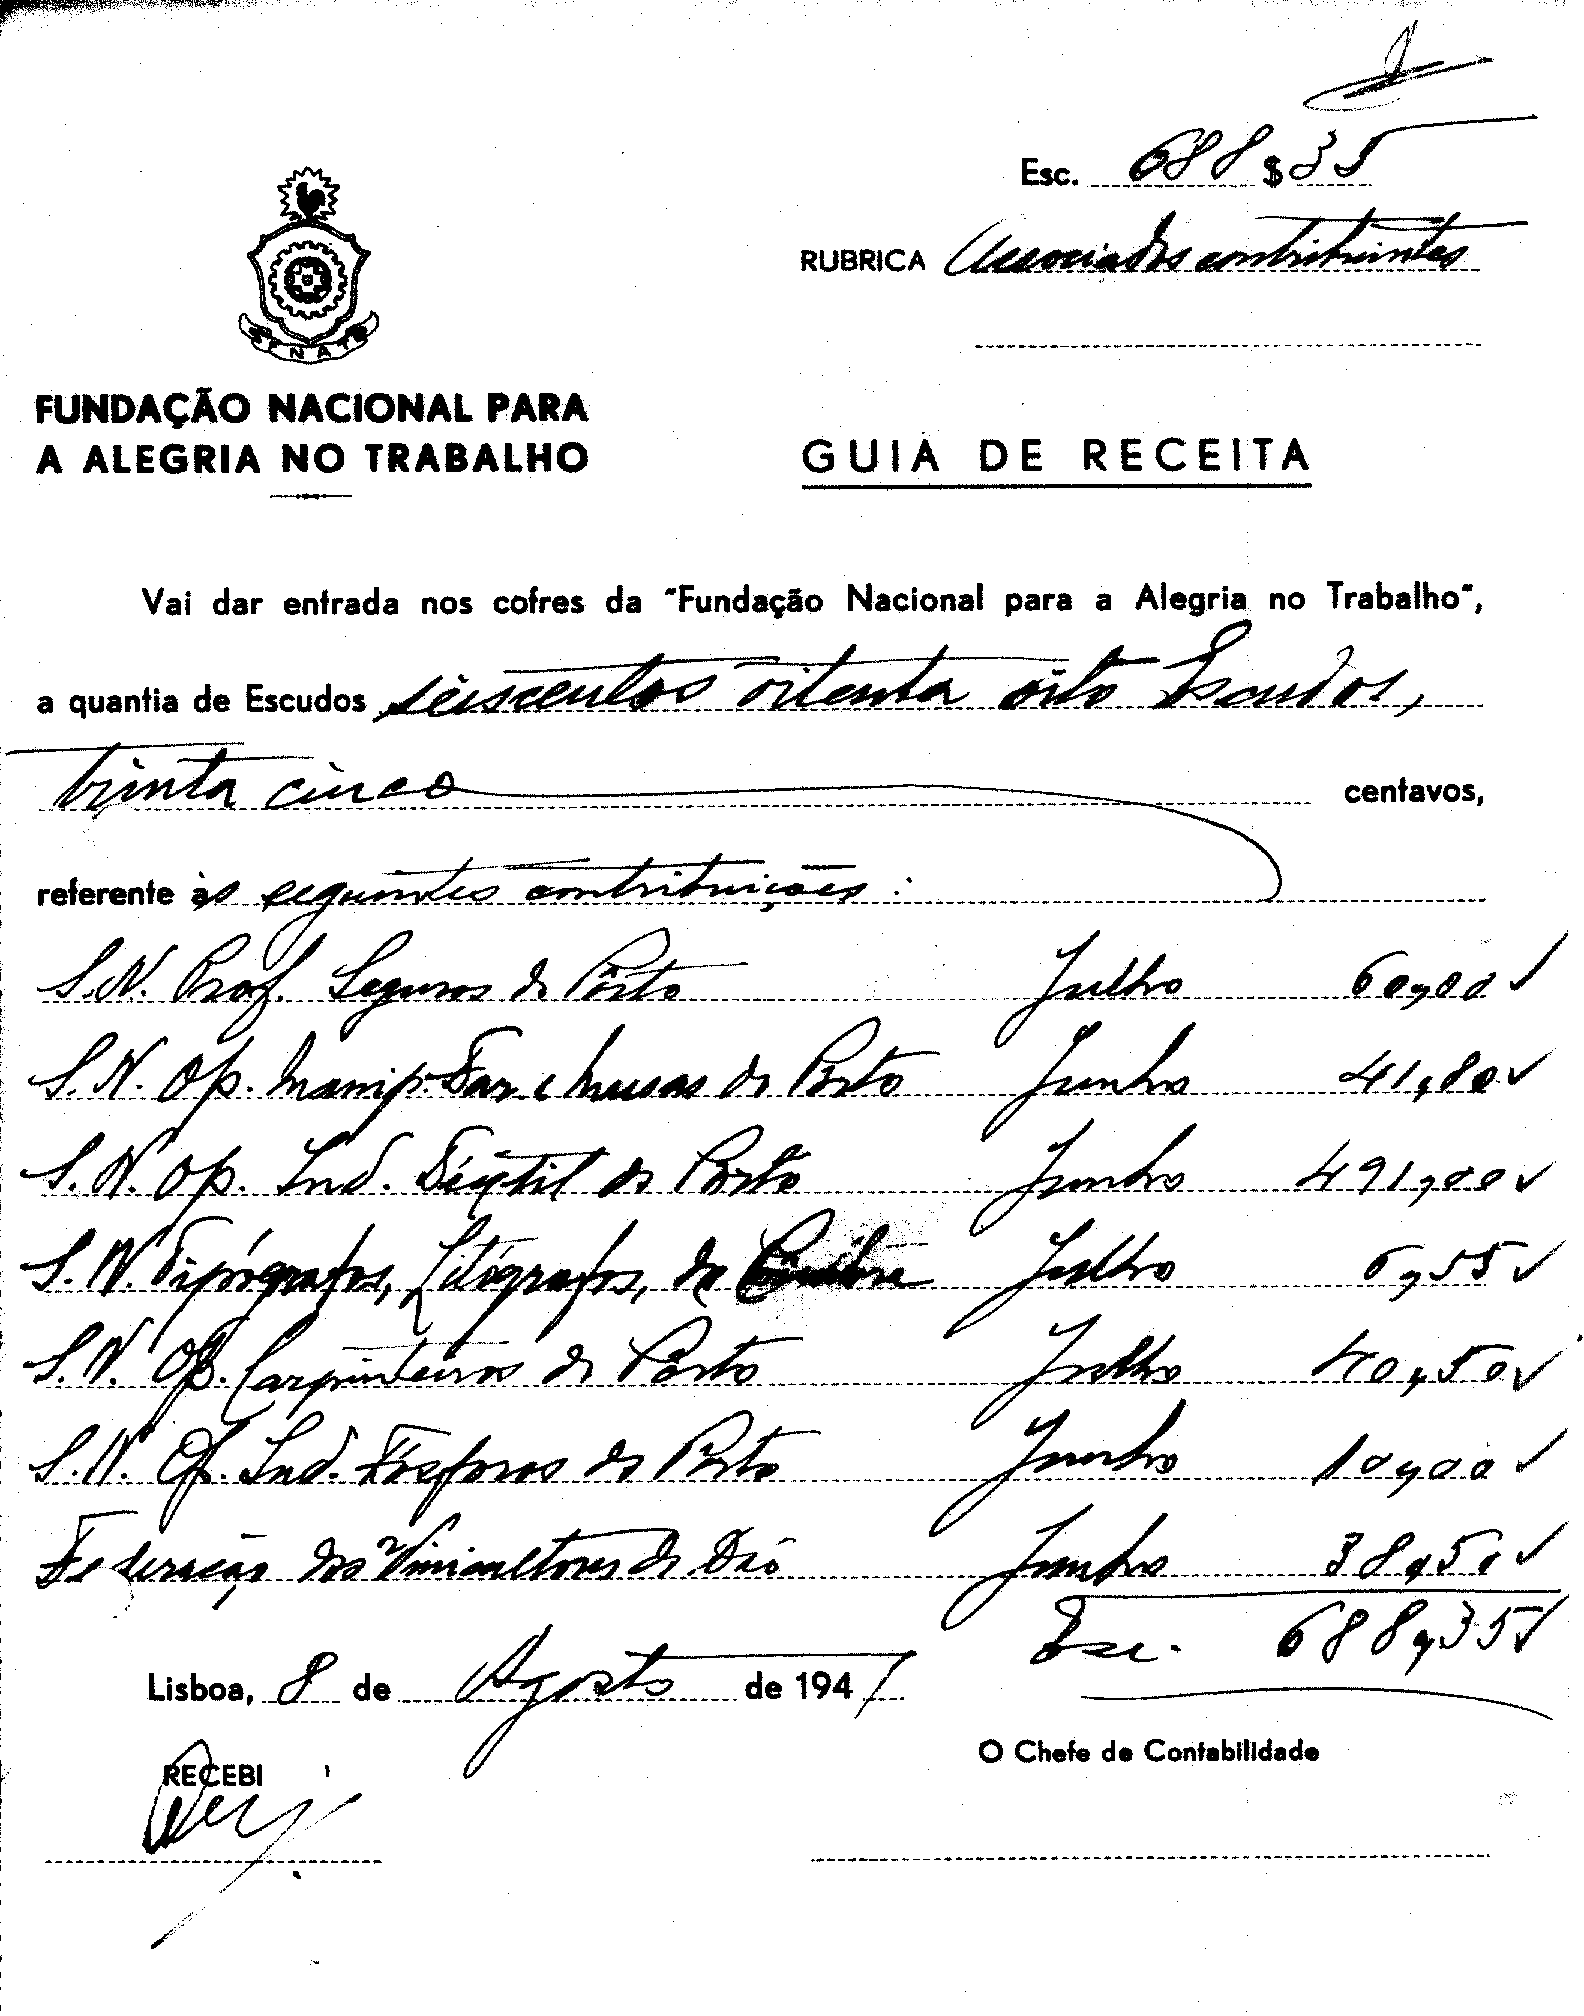 Esc. 688$35
RUBRICA Associados contribuintes
FNAT
FUNDAÇÃO NACIONAL PARA
A ALEGRIA NO TRABALHO
GUIA DE RECEITA
Vai dar entrada nos cofres da "Fundação Nacional para a Alegria no Trabalho",
a quantia de Escudos seiscentos oitenta oito Escudos,
trinta cinco centavos,
referente às seguintes contribuições:
S.N. Prof. Seguros do Pôrto Julho 60,00
S.N. Op. Manip. Far. e Massas do Porto Junho 41,80
S.N. Op. Ind. Têxtil do Porto Junho 491,00
S.N. Tipógrafos, Litógrafos, de Coimbra Julho 6,55
S.N. Op. Carpinteiros do Pôrto Julho 40,50
S.N. Op. Ind. Fósforos do Porto Junho 10,00
Federação dos Vinicultores do Dão Junho 38,50
Esc. 688,35
Lisboa, 8 de Agosto de 1941
O Chefe da Contabilidade
RECEBI